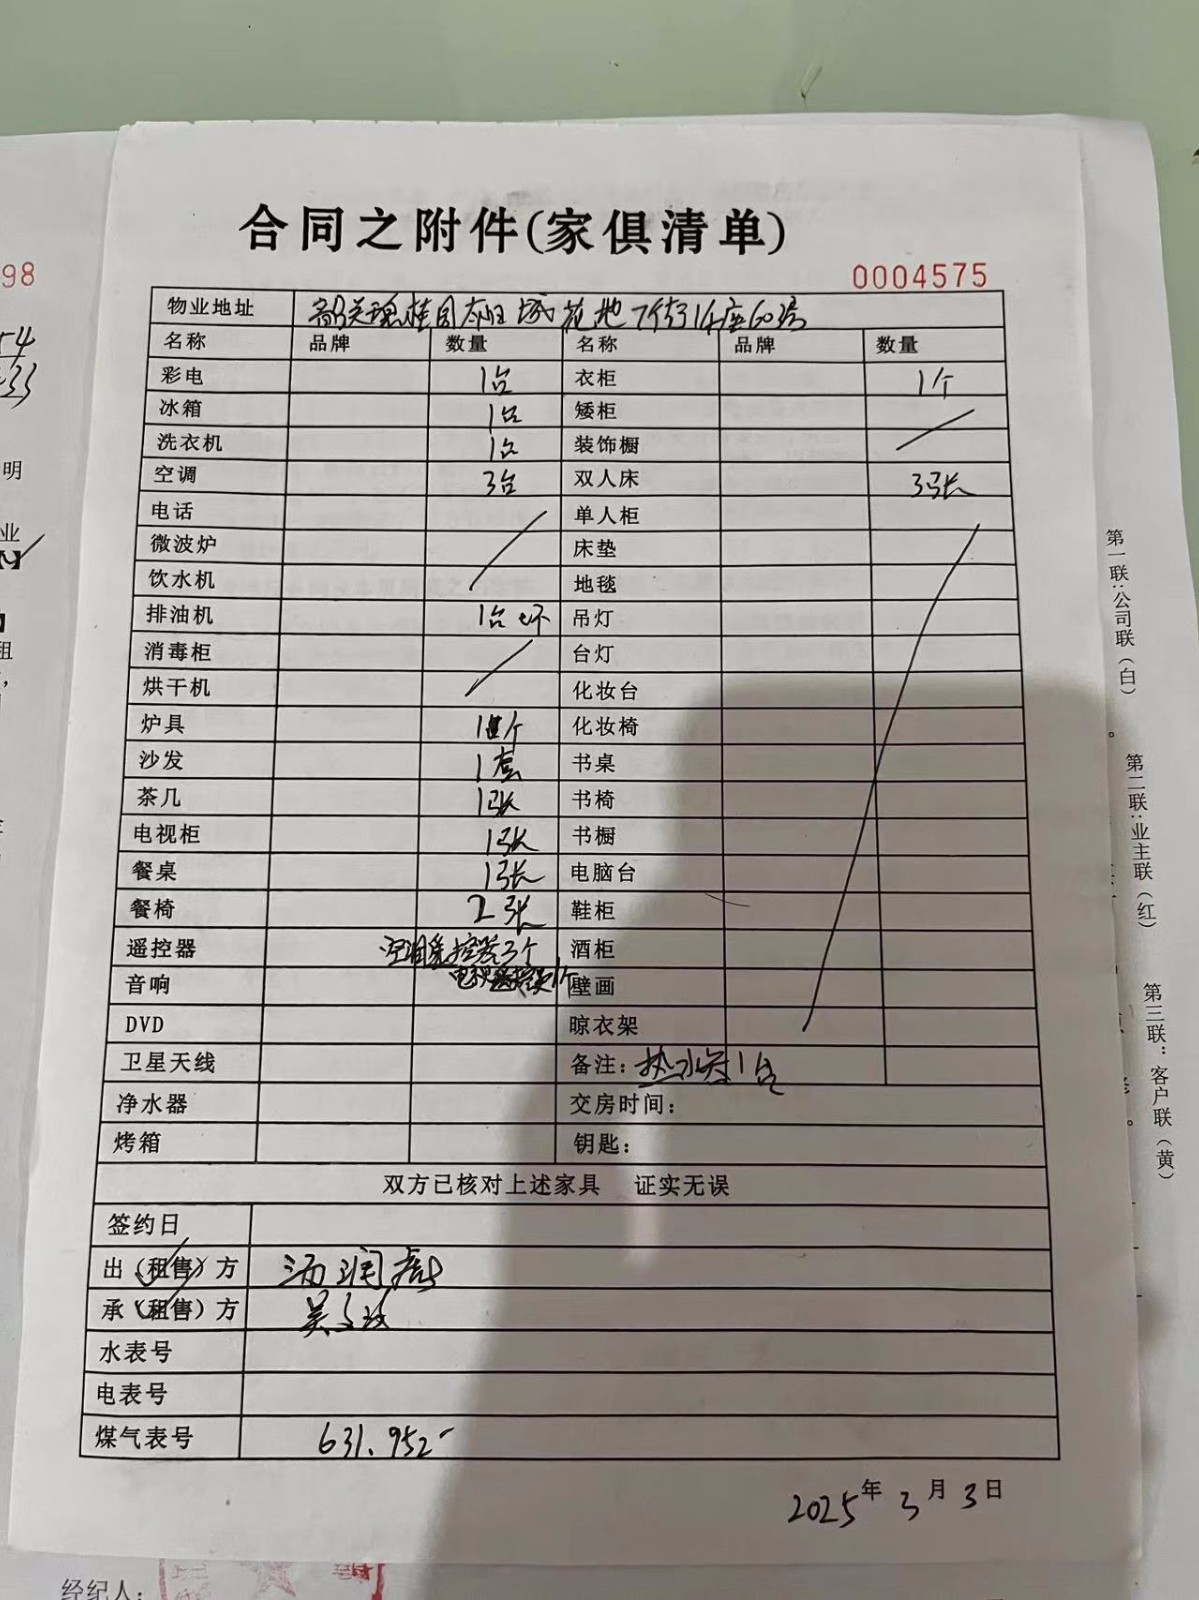 合同之附件(家俱清单)
98
0004575
物业地址 韶关碧桂园太阳城花地7街14座60号
名称 品牌 数量 名称 品牌 数量
彩电 1台 衣柜 1个
冰箱 1台 矮柜
洗衣机 1台 装饰橱
空调 3台 双人床 3张
电话 单人柜
微波炉 床垫
饮水机 地毯
排油机 1台 坏 吊灯
消毒柜 台灯
烘干机 化妆台
炉具 1个 化妆椅
沙发 1套 书桌
茶几 1张 书椅
电视柜 1张 书橱
餐桌 1张 电脑台
餐椅 2张 鞋柜
遥控器 空调遥控器3个 酒柜
音响 电视遥控器1个 壁画
DVD 晾衣架
卫星天线 备注:热水器1台
净水器 交房时间:
烤箱 钥匙:
双方已核对上述家具 证实无误
签约日
出(租售)方 汤润彪
承(租售)方
水表号
电表号
煤气表号 631.952
2025年3月3日
第一联:公司联(白)
第二联:业主联(红)
第三联:客户联(黄)
明
业
租
经纪人: